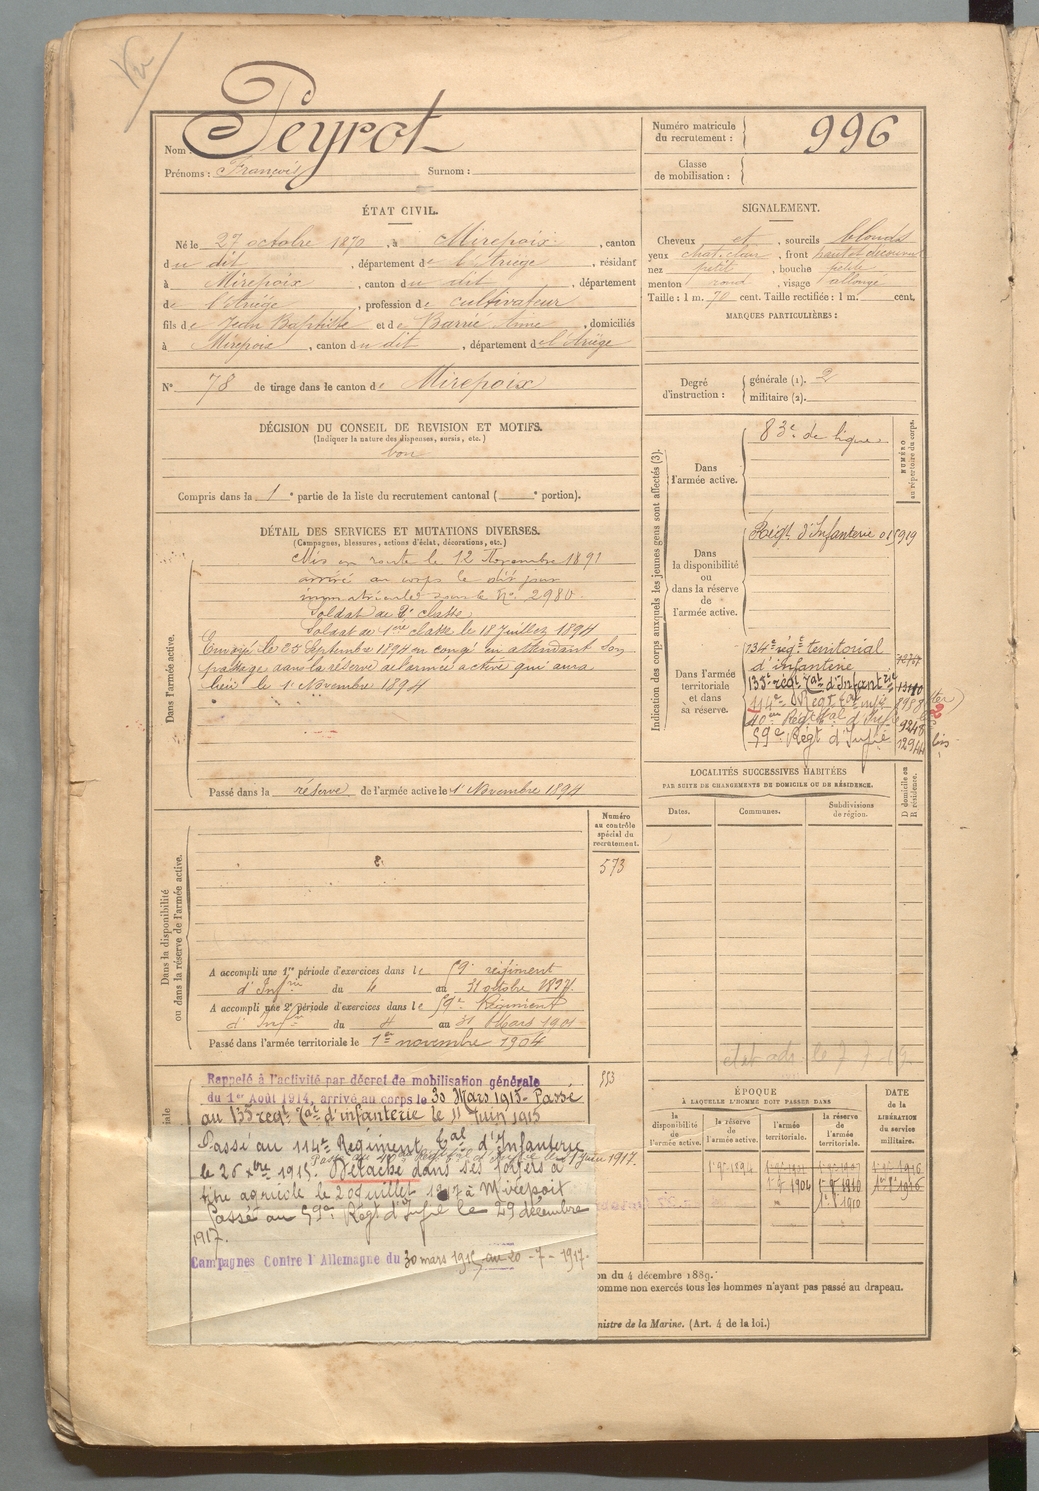 Vu
Nom : Peyrot
Prénoms : François Surnom :
Numéro matricule du recrutement : 996
Classe de mobilisation :
ÉTAT CIVIL.
Né le 27 octobre 1870, à Mirepoix, canton
du dit, département de l'Ariège, résidant
à Mirepoix, canton du dit, département
de l'Ariège, profession de cultivateur
fils de Jean Baptiste et de Barrié Anne, domiciliés
à Mirepoix, canton du dit, département de l'Ariège
N° 78 de tirage dans le canton de Mirepoix
SIGNALEMENT.
Cheveux et, sourcils blonds
yeux chat. clair, front haut et découvert
nez petit, bouche petite
menton rond, visage allongé
Taille : 1 m. 70 cent. Taille rectifiée : 1 m. cent.
MARQUES PARTICULIÈRES :
Degré d'instruction : générale (1). 2
militaire (2).
DÉCISION DU CONSEIL DE REVISION ET MOTIFS.
(Indiquer la nature des dispenses, sursis, etc.)
bon
Compris dans la 1e partie de la liste du recrutement cantonal ( e portion).
DÉTAIL DES SERVICES ET MUTATIONS DIVERSES.
(Campagnes, blessures, actions d'éclat, décorations, etc.)
Dans l'armée active.
Mis en route le 12 Novembre 1891
arrivé au corps le dit jour
immatriculé sous le N° 2980
Soldat de 2e classe
Soldat de 1ere classe le 18 Juillet 1894
Envoyé le 25 Septembre 1894 en congé en attendant son
passage dans la réserve de l'armée active qui aura
lieu le 1er Novembre 1894
Passé dans la réserve de l'armée active le 1er Novembre 1894
Indication des corps auxquels les jeunes gens sont affectés (3).
NUMÉRO au répertoire du corps.
Dans l'armée active.
83e de ligne
Dans la disponibilité ou dans la réserve de l'armée active.
Régt d'Infanterie 01919
Dans l'armée territoriale et dans sa réserve.
134e régt territorial
d'infanterie
135e régt Tal d'Infantrie 13180
114e Régt Tal
40e Régt Tal d'Inf 9248
59e Régt d'Infie 12944 bis
LOCALITÉS SUCCESSIVES HABITÉES
PAR SUITE DE CHANGEMENTS DE DOMICILE OU DE RÉSIDENCE.
Dates. Communes. Subdivisions de région. D domicile ou R résidence.
Dans la disponibilité ou dans la réserve de l'armée active.
Numéro au contrôle spécial du recrutement.
573
A accompli une 1re période d'exercices dans le 59e régiment
d'Infrie du 4 au 31 octobre 1897
A accompli une 2e période d'exercices dans le 59e Régiment
d'Infrie du 4 au 31 Mars 1901
Passé dans l'armée territoriale le 1er novembre 1904
Rappelé à l'activité par décret de mobilisation générale
du 1er Août 1914, arrivé au corps le 30 Mars 1915. Passé
au 135 régt Tal d'infanterie le 11 Juin 1915
553
Passé au 114e Régiment Tal d'Infanterie
le 26 xbre 1915.
Détaché dans ses foyers à
titre agricole le 20 Juillet 1917 à Mirepoix
Passé au 59e Régt d'Infie le 29 décembre
1917.
Campagnes Contre l'Allemagne du 30 mars 1915 au 20-7-1917.
ÉPOQUE
À LAQUELLE L'HOMME DOIT PASSER DANS
la disponibilité de l'armée active.
la réserve de l'armée active.
l'armée territoriale.
la réserve de l'armée territoriale.
DATE de la LIBÉRATION du service militaire.
1904 1910
1er 9bre 1910
on du 4 décembre 1889.
comme non exercés tous les hommes n'ayant pas passé au drapeau.
nistre de la Marine. (Art. 4 de la loi.)